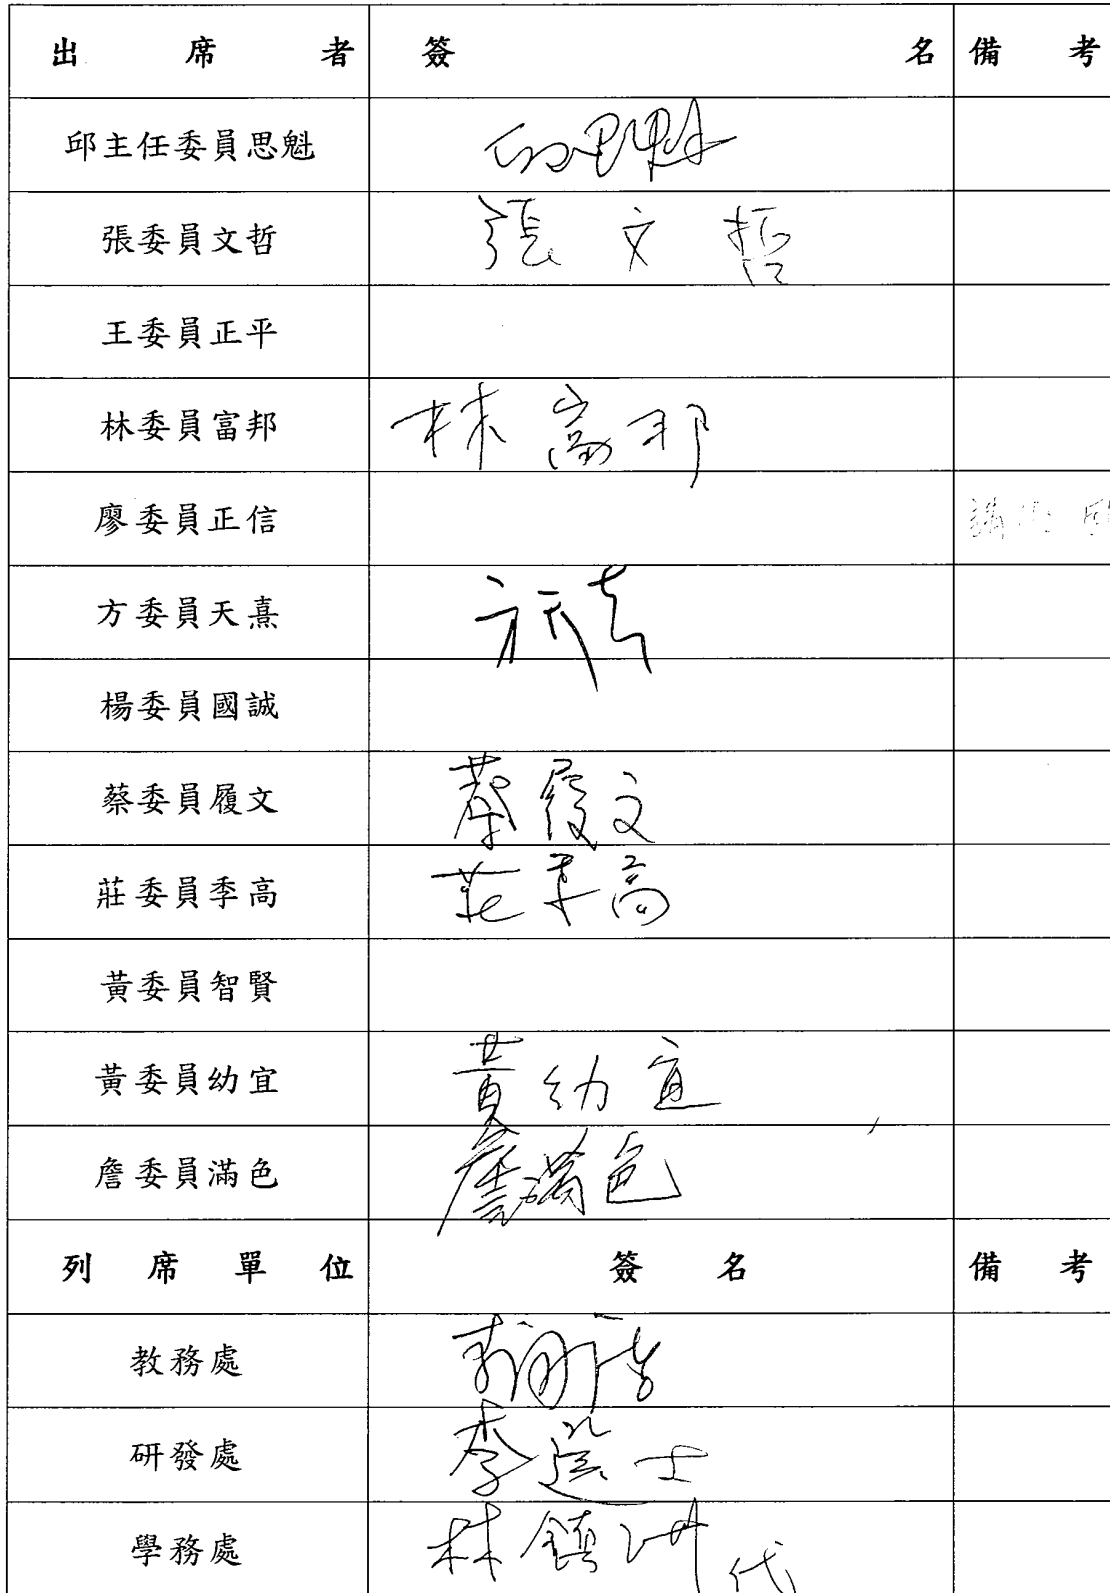 出席者 簽名 備考
邱主任委員思魁 邱思魁
張委員文哲 張文哲
王委員正平
林委員富邦 林富邦
廖委員正信
方委員天熹 方天熹
楊委員國誠
蔡委員履文 蔡履文
莊委員季高 莊季高
黃委員智賢
黃委員幼宜 黃幼宜
詹委員滿色 詹滿色
列席單位 簽名 備考
教務處
研發處 李選士
學務處 林鎮洲 代